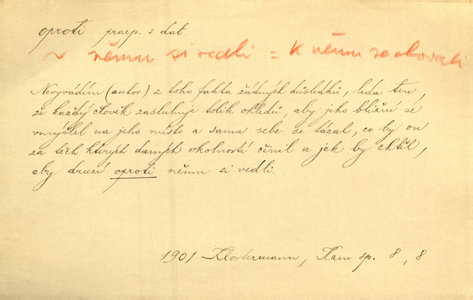 oproti praep. s dat.
~ němu si vedli = k němu se chovali
Nevyvádím (autor) z toho fakta žádných důsledků, leda ten,
že každý člověk zasluhuje tolik ohledů, aby jeho bližní se
vmyslil na jeho místo a sama sebe se tázal, co by on
za těch kterých daných okolností činil a jak by chtěl,
aby druzí oproti němu si vedli.
1901 Klostermann, Kam sp. 8, 8